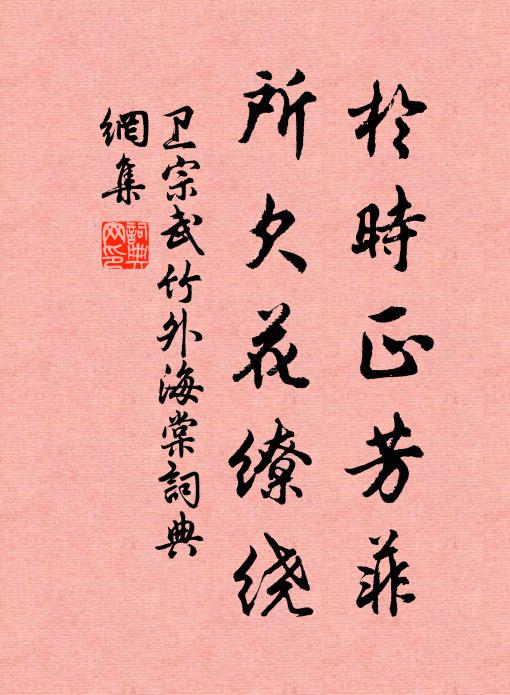 於時正芳菲
所欠花缭绕
卫宗武竹外海棠詞典
網集
詞典
网印